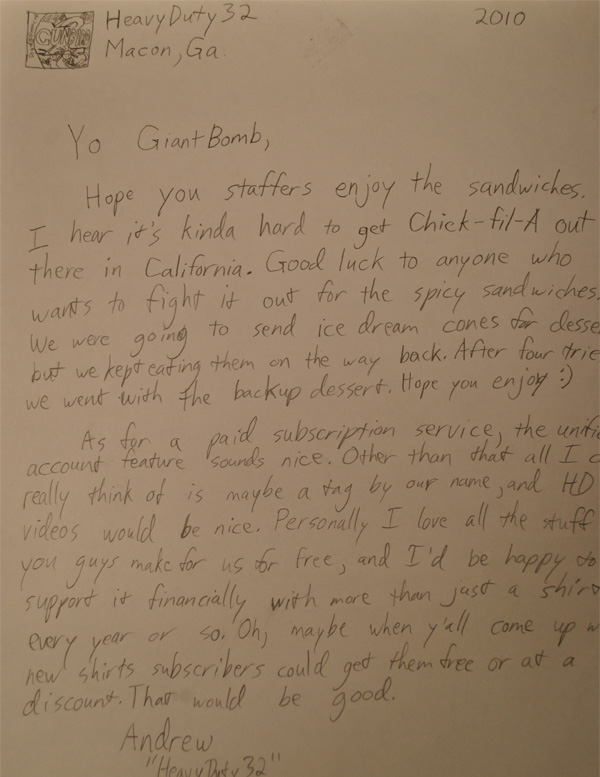 HeavyDuty32
2010
Macon, Ga.
Yo GiantBomb,
Hope you staffers enjoy the sandwiches.
I hear it's kinda hard to get Chick-fil-A out
there in California. Good luck to anyone who
wants to fight it out for the spicy sandwiches.
We were going to send ice dream cones for desse
but we kept eating them on the way back. After four trie
we went with the backup dessert. Hope you enjoy :)
As for a paid subscription service, the unifie
account feature sounds nice. Other than that all I c
really think of is maybe a tag by our name, and HD
videos would be nice. Personally I love all the stuff
you guys make for us for free, and I'd be happy to
support it financially with more than just a shirt
every year or so. Oh, maybe when y'all come up w
new shirts subscribers could get them free or at a
discount. That would be good.
Andrew
"HeavyDuty32"